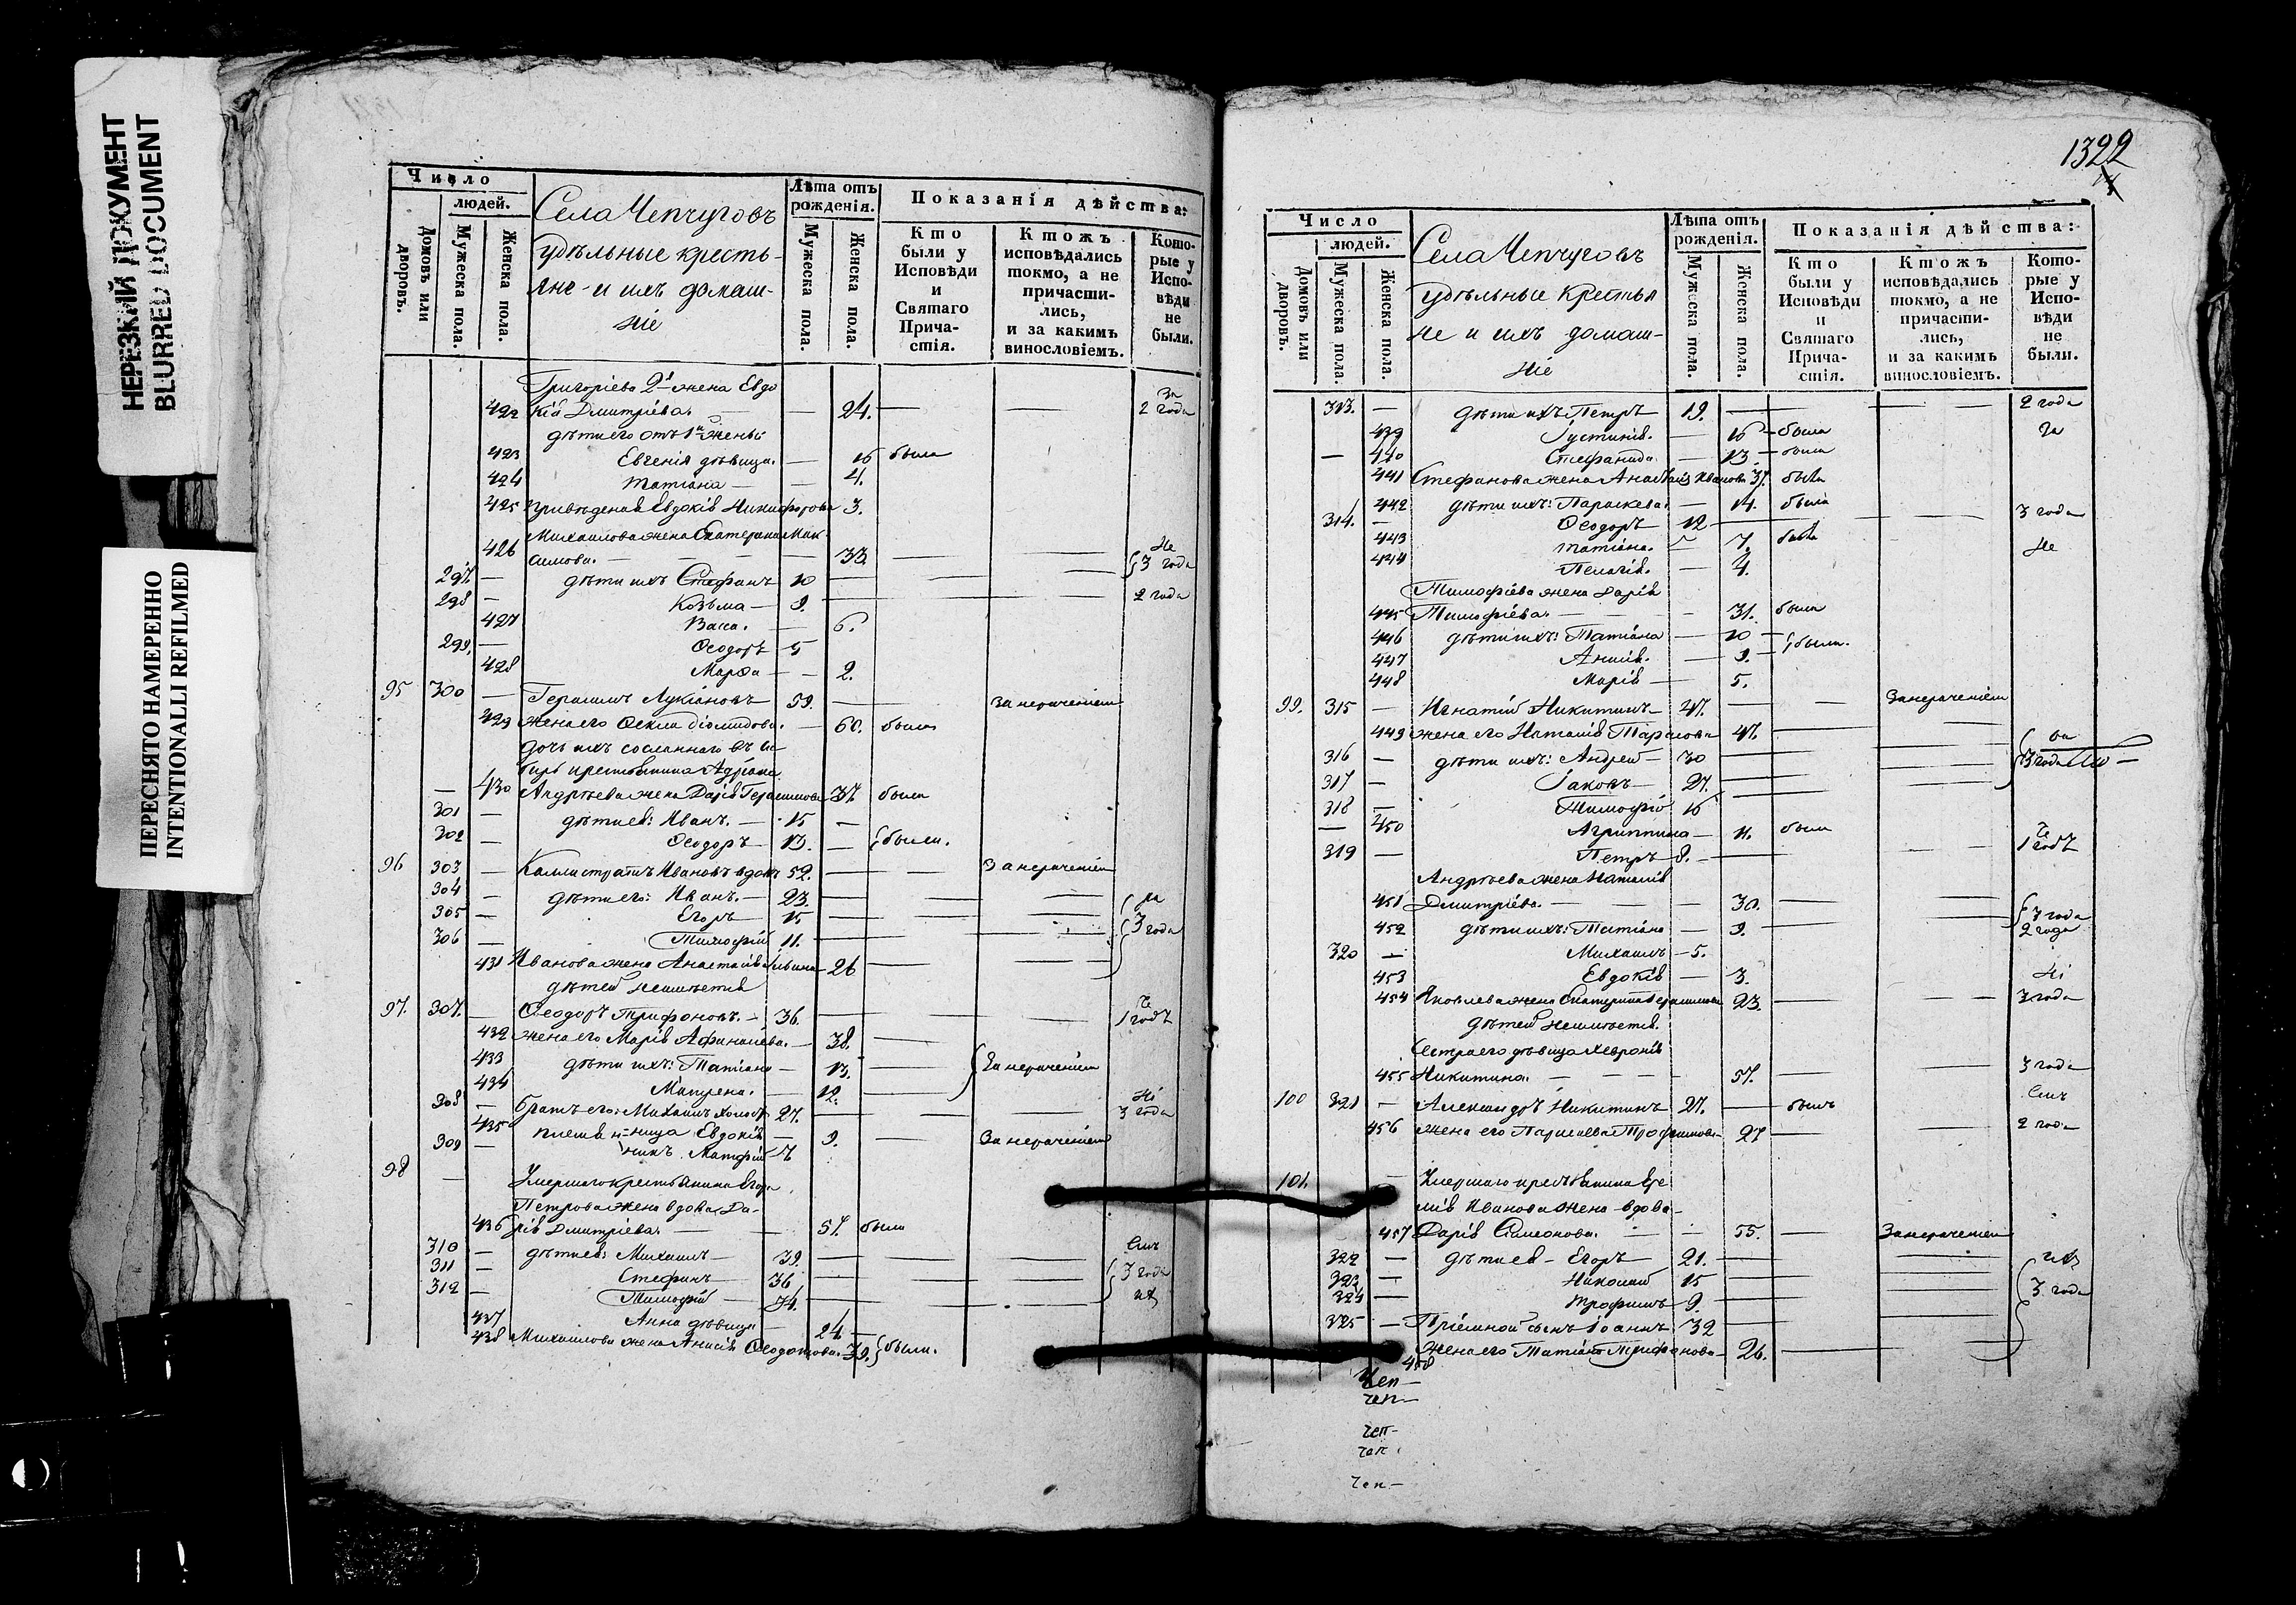 НЕРЕЗКИЙ ДОКУМЕНТ
BLURRED DOCUMENT
ПЕРЕСНЯТО НАМЕРЕННО
INTENTIONALLI REFILMED
Число
людей.
Домовъ или дворовъ.
Мужеска пола.
Женска пола.
Села Чепчуговъ
удѣльные кресть-
яне и ихъ домаш-
ніе
Лѣта отъ рожденія.
Мужеска пола.
Женска пола.
Показанія дѣйства:
Кто были у Исповѣди и Святаго Прича-стія.
Ктожъ исповѣдались токмо, а не причасти-лись, и за какимъ винословіемъ.
Кото-рые у Испо-вѣди не были.
Григоріева 2я жена Евдо
422 кія Дмитріева. — 24. — — за 2 года
дѣти его отъ 1й жены
423 Евгенія дѣвица. — 16 была
424 Татіана — — 4.
425 Евдокія Никифорова 3.
Михаилова жена Екатерина Мак-
426 симова. — 33. — — Не
297. — дѣти ихъ Стефанъ 10 — — 3 года
298 — Козьма — 9. — — 2 года
427 Васса. — 6.
299. — Ѳеодоръ 5
428 Марѳа — — 2.
95 300 — Герасимъ Лукіановъ 59. — за нераченіем
429 жена его Ѳекла Діомидова. — 60. была
дочь ихъ сосланнаго въ Си-
бирь крестьянина Адріана
— 430 Андреева жена Дарія Герасимова 37. была
301 — дѣти ея: Иванъ. — 15 —
302 — Ѳеодоръ 13. — были.
96 303 — Каллистратъ Ивановъ вдовъ 52. — — За нераченіем
304 — дѣти его: Иванъ. — 23. — —
305 — Егоръ 15 — — 3 года
306 — Тимофій 11. — —
431 Иванова жена Анастасія — 26 — —
дѣтей неимѣетъ
97. 307. — Ѳеодоръ Трифоновъ. — 36. — — 1 годъ
432 жена его Марія Афанасіева. — 38. —
433 дѣти ихъ: Татіана — 13. — За нераченіем
434 Матрена. — 12. —
308 — братъ его: Михаилъ холостъ 27. — — 3 года
435 племя н-ница Евдокія — 9. — За нераченіем
309 — никъ. Матфій
98 — Умершаго крестьянина Егора
Петрова жена вдова Да-
436 рія Дмитріева. — — 57. была
310 — дѣти ея: Михаилъ — 39. — —
311 — Стефанъ 36 — — 3 года
312 — Тимофій — 34. — —
437 Анна дѣвица — 24. —
438 Михаилова жена Анисія Ѳеодотова. 39. были.
1322
Число
людей.
Домовъ или дворовъ.
Мужеска пола.
Женска пола.
Села Чепчуговъ
удѣльные крестья
не и ихъ домаш-
ніе
Лѣта отъ рожденія.
Мужеска пола.
Женска пола.
Показанія дѣйства:
Кто были у Исповѣди и Святаго Прича-стія.
Ктожъ исповѣдались токмо, а не причасти-лись, и за какимъ винословіемъ.
Кото-рые у Испо-вѣди не были.
313. — дѣти ихъ: Петръ 19. — — 2 года
439 Іустинія. — 16 — была
— 440 Стефанида. — 13. — была
441 Стефанова жена Анастасія Иванова 37. была
442 дѣти ихъ: Параскева. — 14. была
314. — Ѳеодоръ 12 — — 3 года
443 Татіана. — 7. была Не
444 Пелагія. — 4.
Тимофіева жена Дарія
445 Тимофіева. — — 31. была
446 дѣти ихъ: Татіана — 10 —
447 Анисія. — 9. — были.
448 Марія — 5.
99. 315 — Игнатій Никитинъ — 47. — — За нераченіем
449 жена его Наталія Тарасова 47. — —
316 — дѣти ихъ: Андрей — 30 — — 3 года
317 — Іаковъ — 27. — —
318 — Тимофій 16 — —
— 450 Агриппина — 11. была
319 — Петръ — 8. — — 1 годъ
Андреева жена Наталія
451 Дмитріева. — — — 30. — —
452 дѣти ихъ: Татіана — 9. — — 3 года
2 года
320 — Михаилъ — 5.
453 Евдокія — 3.
454 Яковлева жена Екатерина Герасимова 23. — — 3 года
дѣтей неимѣетъ.
Сестра его дѣвица Хевронія
455 Никитина. — — — 57. — — 3 года
100 321 — Александръ Никитинъ 27. — былъ
456 жена его Параскева Трофимова 27 — — 2 года
101. — Умершаго крестьянина Ере
мія Иванова жена вдова —
457 Дарія Симеонова. — — 55. — За нераченіем
322 — дѣти ея — Егоръ — 21. — —
323 — Николай 15 — — 3 года
324 — Трофимъ 9. — —
325 — Пріемной сынъ Іоаннъ 32 — —
458 жена его Татіана Трифонова — 26. — —
Чеп—
Чеп—
Чеп—
Чеп
Чеп—